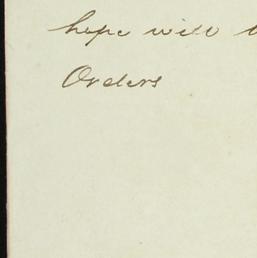 hope will
Orders